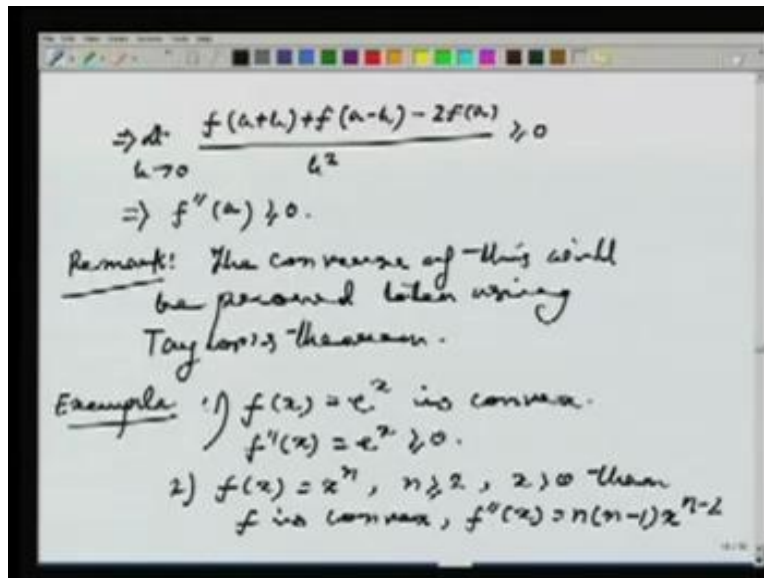 ⇒ lt f(a+h)+f(a-h)-2f(a) ≥ 0
h→0 h²
⇒ f''(a) ≥ 0.
Remark: The converse of this will
be proved later using
Taylor's theorem.
Example 1) f(x) = eˣ is convex.
f''(x) = eˣ ≥ 0.
2) f(x) = xⁿ, n ≥ 2, x > 0 then
f is convex, f''(x) = n(n-1)xⁿ⁻²